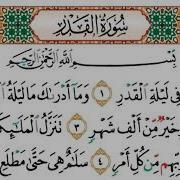 سُورَةُ الْقَدْرِ
بِسْمِ اللَّهِ الرَّحْمَٰنِ الرَّحِيمِ
فِي لَيْلَةِ الْقَدْرِ ١ وَمَا أَدْرَاكَ مَا لَيْلَةُ
خَيْرٌ مِنْ أَلْفِ شَهْرٍ ٣ تَنَزَّلُ
مِنْ كُلِّ أَمْرٍ ٤ سَلَٰمٌ هِيَ حَتَّىٰ مَطْلَعِ